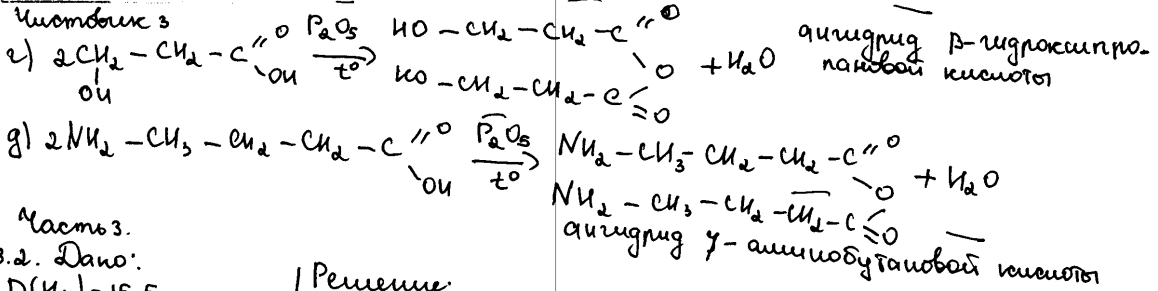 Чистовик 3
г) 2CH₂ – CH₂ – C =O –OH | OH P₂O₅ t° → HO – CH₂ – CH₂ – C =O – O HO – CH₂ – CH₂ – C =O + H₂O ангидрид β-гидроксипро-
пановой кислоты
д) 2NH₂ – CH₃ – CH₂ – CH₂ – C =O –OH P₂O₅ t° → NH₂ – CH₃ – CH₂ – CH₂ – C =O – O NH₂ – CH₃ – CH₂ – CH₂ – C =O + H₂O
ангидрид γ-аминобутановой кислоты
Часть 3.
3.2. Дано:
Решение: